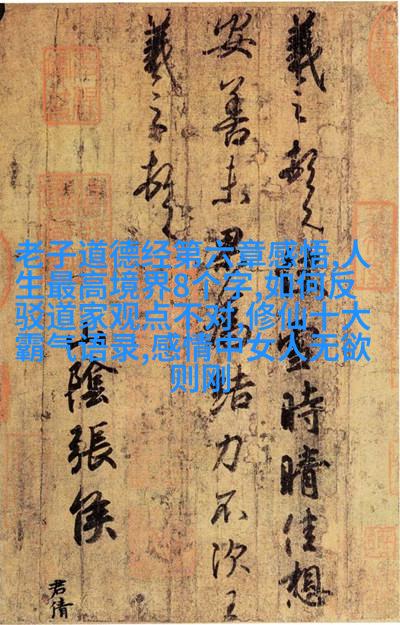 羲之頓首雪時晴佳想
安善未果為結力不次王
羲之頓首
山陰張侯
君倩
老子道德经第六章感悟,人
生最高境界8个字,如何反
驳道家观点不对,修仙十大
霸气语录,感情中女人无欲
则刚